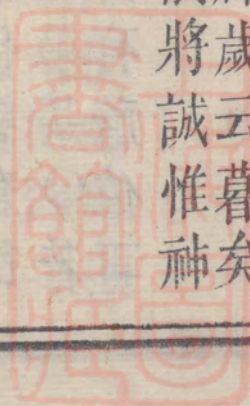 歲云暮矣
將誠惟神
書館